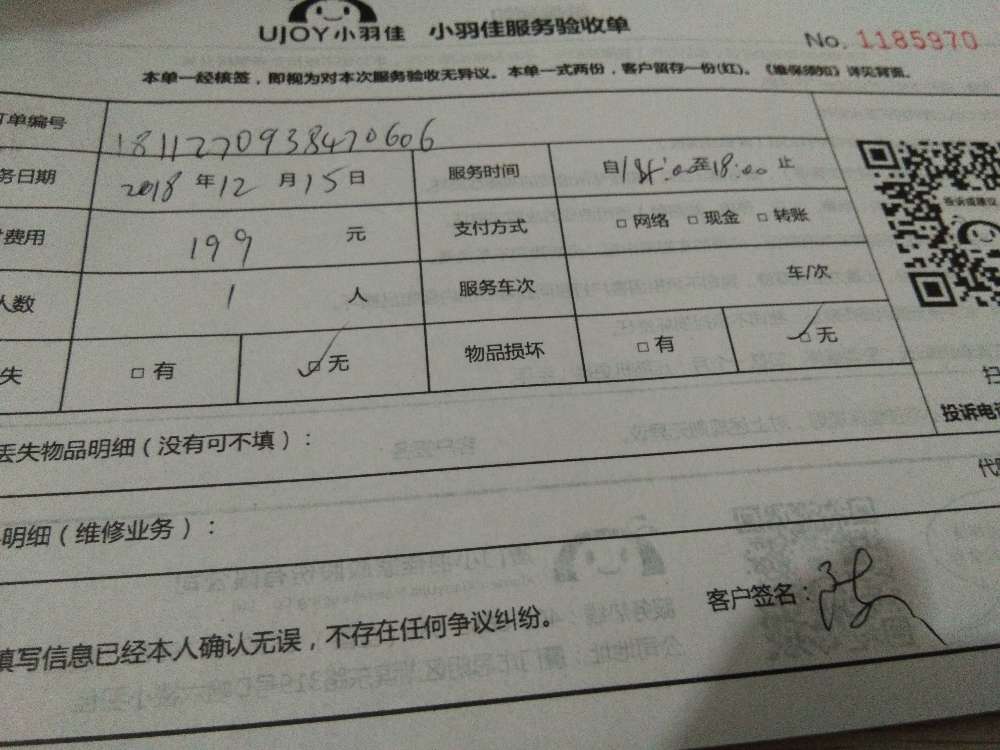 UJOY小羽佳 小羽佳服务验收单
No. 1185970
本单一经核签，即视为对本次服务验收无异议。本单一式两份，客户留存一份(红)。《维保须知》详见背面。
单编号 1811270938470606
务日期 2018 年 12 月 15 日 服务时间 自 至 18:00 止
费用 199 元 支付方式 □ 网络 □ 现金 □ 转账
投诉或建议
人数 1 人 服务车次 车/次
失 □ 有 □ 无 物品损坏 □ 有 □ 无
扫
投诉电
丢失物品明细（没有可不填）：
代
明细（维修业务）：
填写信息已经本人确认无误，不存在任何争议纠纷。 客户签名：